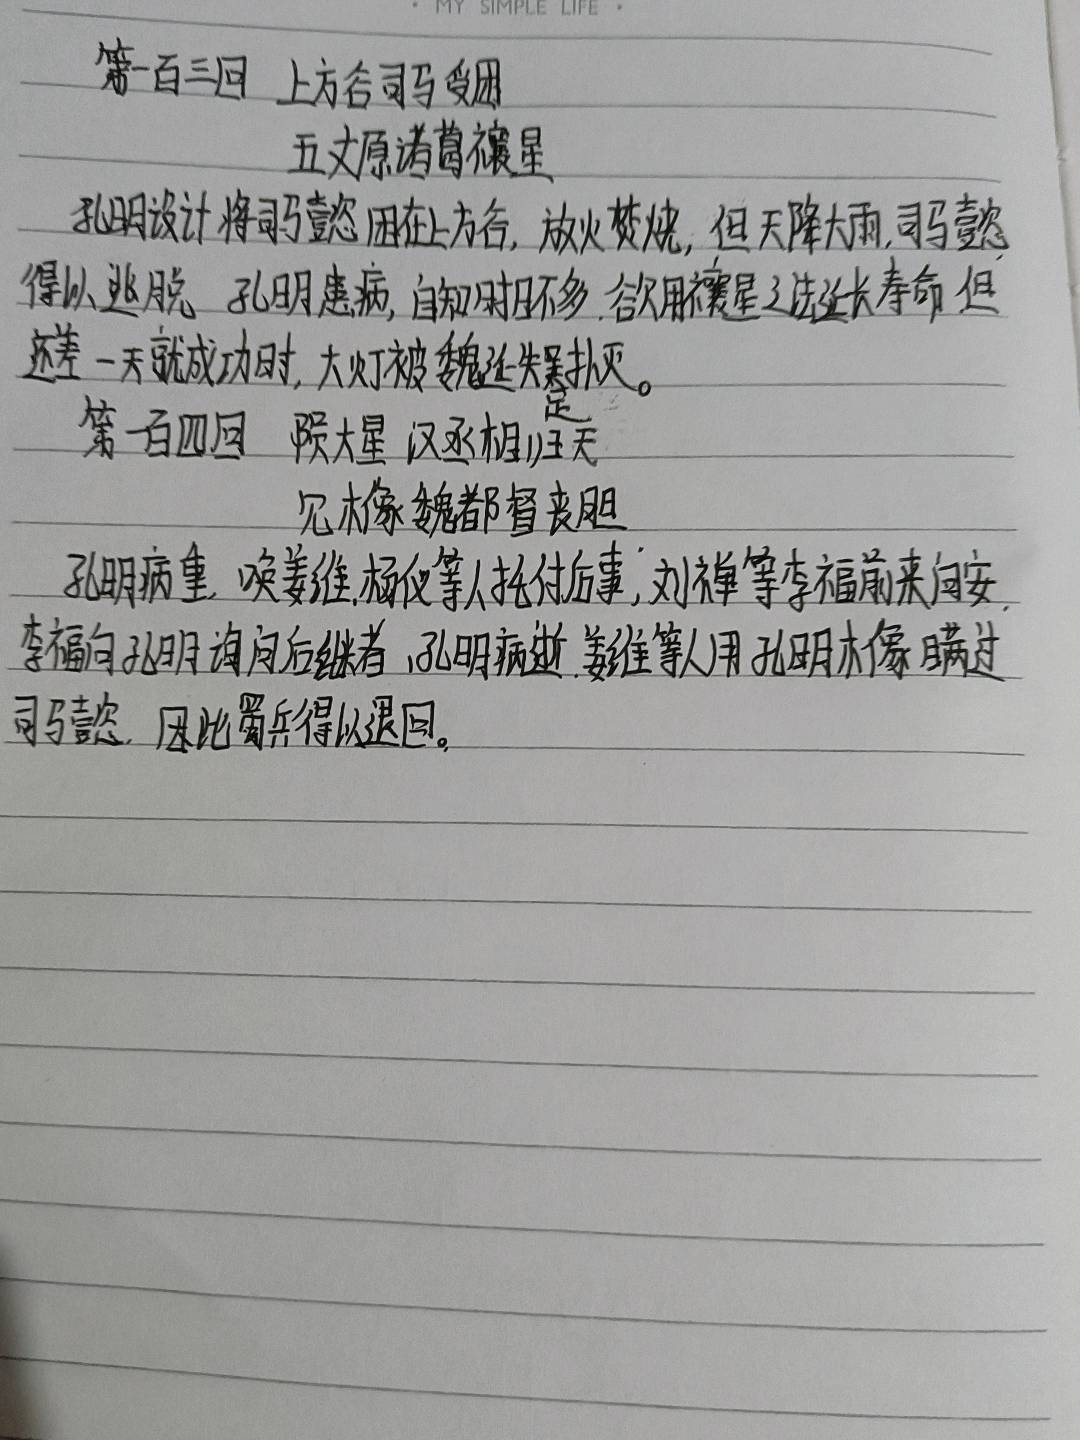 · MY SIMPLE LIFE ·
第一百三回 上方谷司马受困
五丈原诸葛禳星
孔明设计将司马懿困在上方谷，放火焚烧，但天降大雨，司马懿
得以逃脱 孔明患病，自知时日不多，欲用禳星之法延长寿命 但
还差一天就成功时，大灯被魏延失足扑灭。
第一百四回 陨大星 汉丞相归天
见木像魏都督丧胆
孔明病重，唤姜维、杨仪等人托付后事，刘禅等李福前来问安，
李福向孔明询问后继者，孔明病逝，姜维等人用孔明木像瞒过
司马懿，因此蜀兵得以退回。